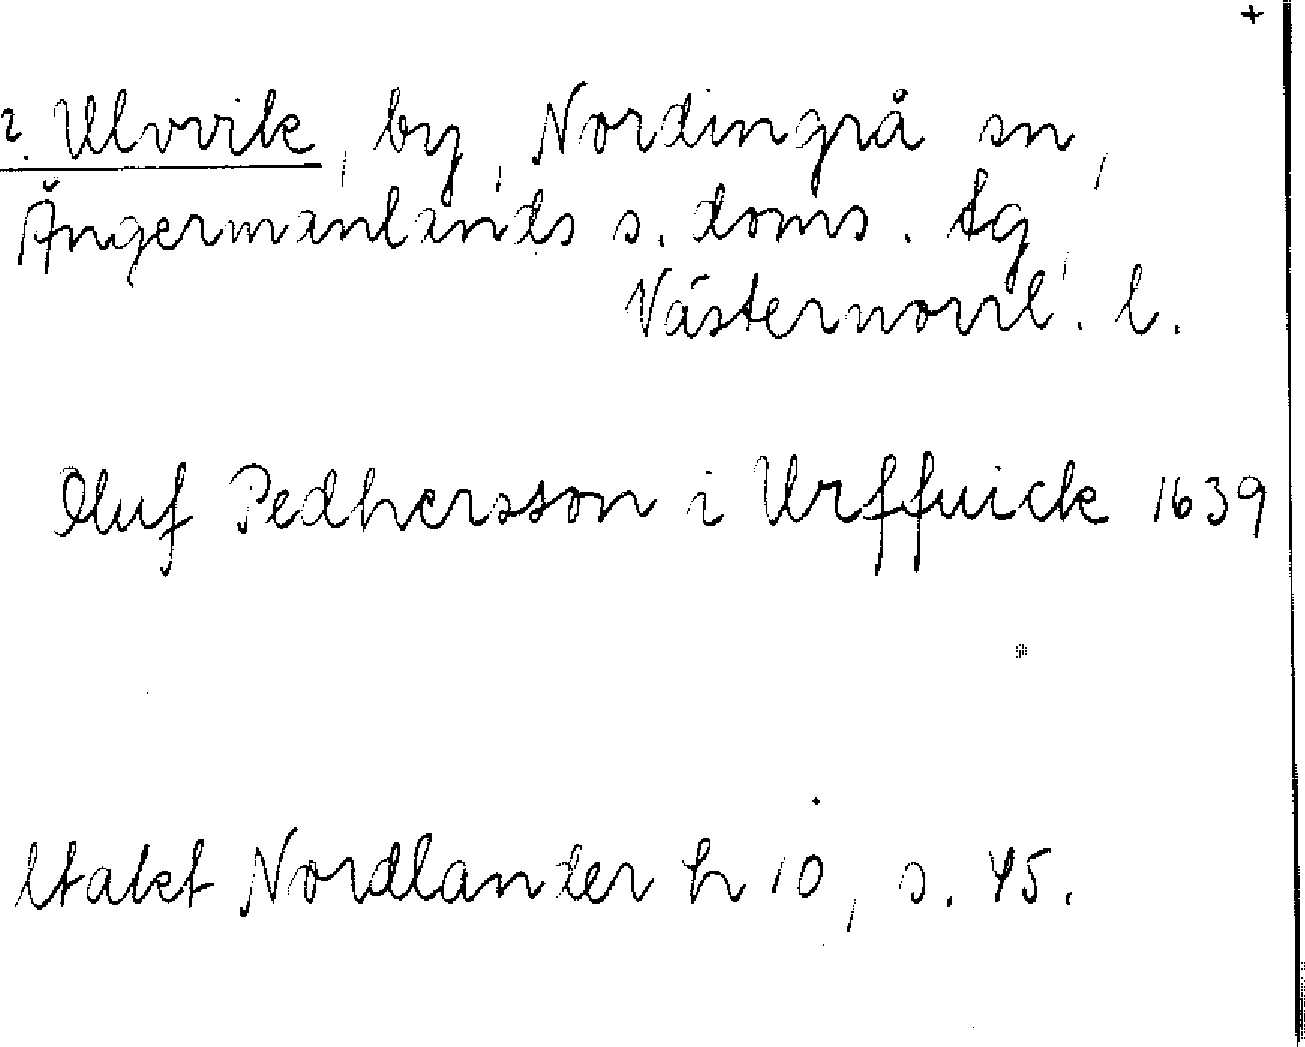 +
? Ulvvik, by, Nordingrå sn,
Ångermanlands s. doms. tg,
Västernorrl. l.
Oluf Pedhersson i Urffuick 1639
Nordlander h 10, s. 45.